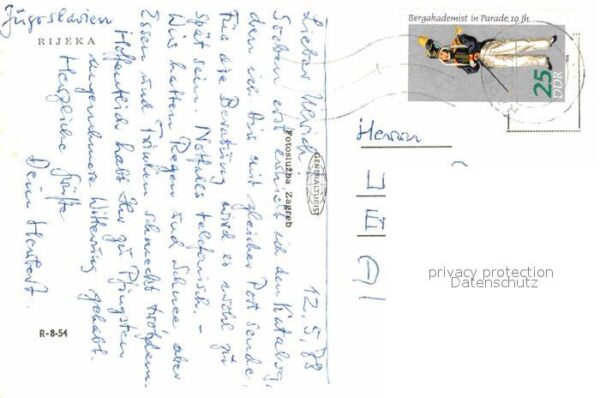 Jugoslavien
RIJEKA
12.5.78
Lieber Ulrich!
Soeben erst erhielt ich den Katalog,
den ich Dir mit gleicher Post sende.
Für die Beratung wird es wohl zu
spät sein. Notfalls telefonisch. –
Wir hatten Regen und Schnee aber
Essen und Trinken schmeckt trotzdem.
Hoffentlich habt Ihr zu Pfingsten
angenehmere Witterung gehabt.
Herzliche Grüße
Dein Herbert.
R-8-54
GENERALTURIST
Fotoslužba Zagreb
Bergakademist in Parade, 19. Jh.
25
DDR
Herrn
privacy protection
Datenschutz